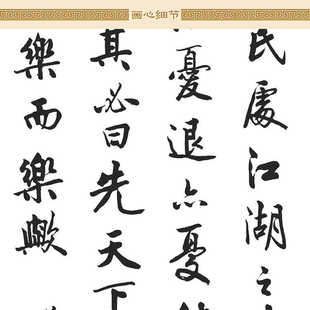 画心细节
民處江湖之
憂退亦憂
其必曰先天下
樂而樂歟